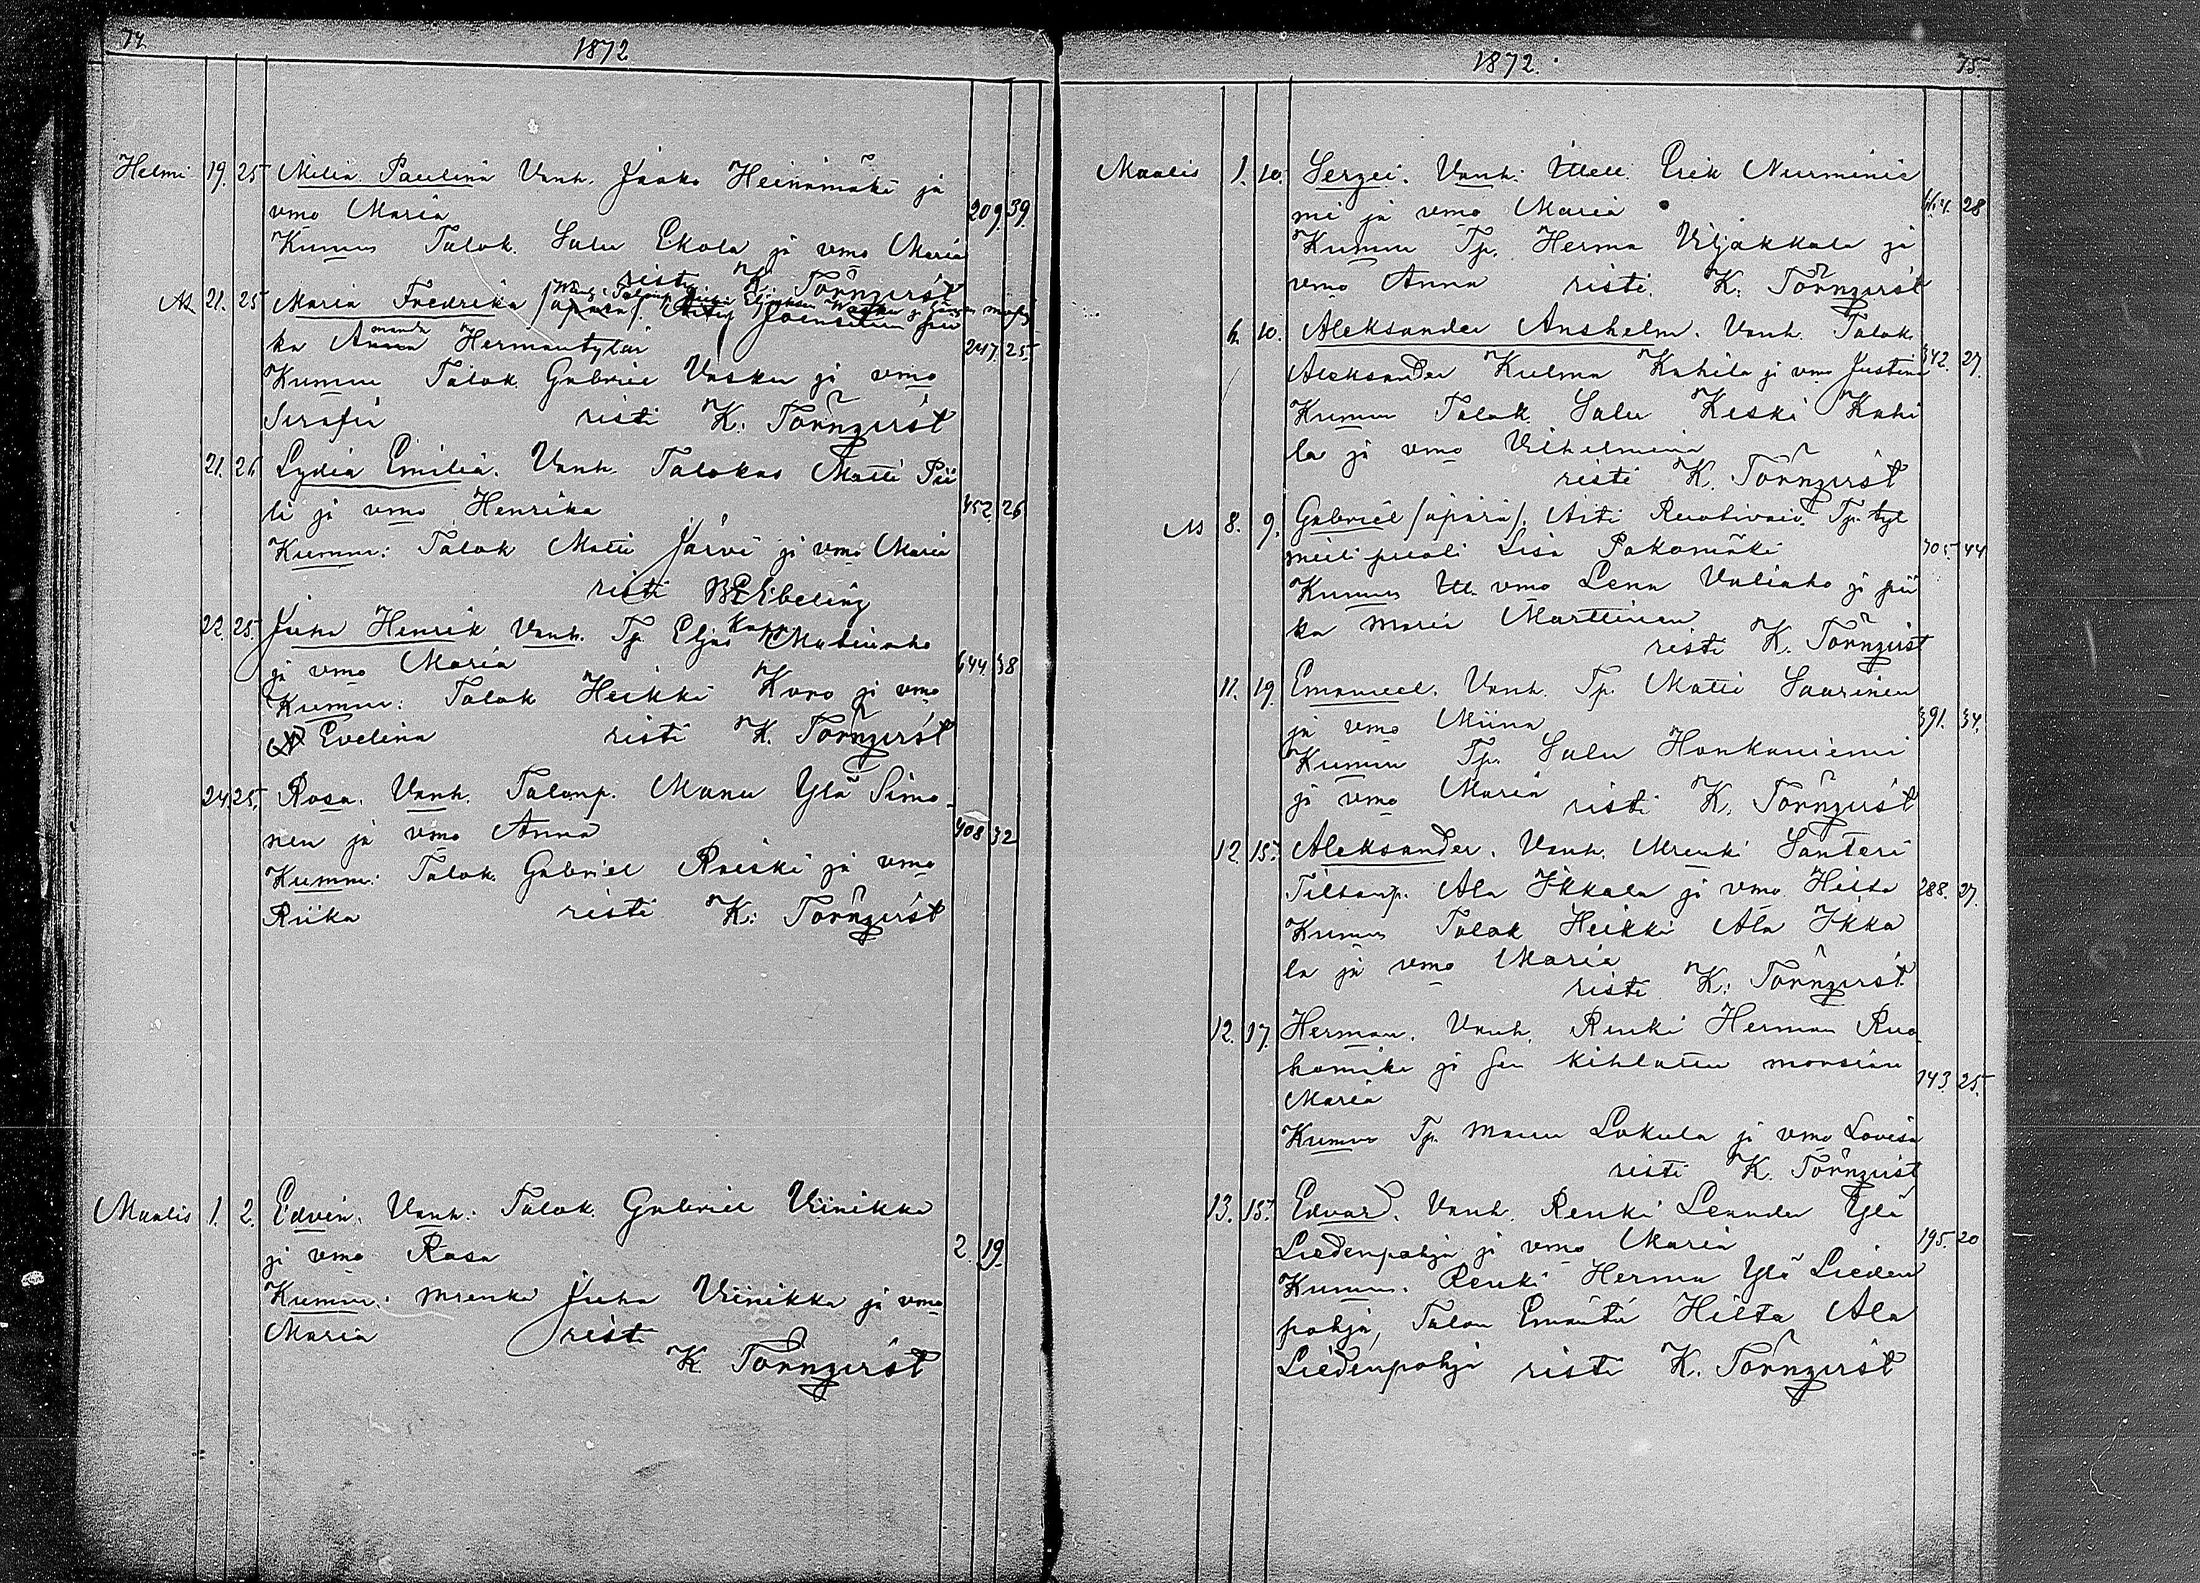 74.
1872
Helmi 19. 25 Milia Paulina Vanh. Jaako Heinämäki ja
vmo Maria 209. 39.
Kumm Talok. Salu Ekola ja vmo Maria
risti K. Törnqvist
Ä 21. 25 Maria Fredrika (äpärä). Äiti Joensuun pii
ka Amanda Hermantytär 247 25.
Kumm Talok. Gabriel Vasku ja vmo
Serafia risti K. Törnqvist
21. 26 Lydia Emilia. Vanh. Talokas Matti Pii
li ja vmo Henrika 452. 26
Kumm: Talok Matti Järvi ja vmo Maria
risti Ebeling
22. 25. Juha Henrik Vanh. Tp. Elias
ja vmo Maria 644. 38
Kumm: Talok Heikki Karo ja vmo
Evelina risti K. Törnqvist
24. 25. Rosa. Vanh. Talonp. Manu Ylä Simo-
nen ja vmo Anna 408 32
Kumm: Talok. Gabriel Raiski ja vmo
Riika risti K: Törnqvist
Maalis 1. 2. Edvin. Vanh: Talok. Gabriel Viinikka
ja vmo Rosa 2. 19.
Kumm: Juha Viinikka ja vmo
Maria risti
K Törnqvist
1872.
75.
Maalis 1. 10. Sergei. Vanh: Itsell. Erik Nurminie
mi ja vmo Maria 28
Kumm Tp. Herma Viljakkala ja
vmo Anna risti. K: Törnqvist
6. 10. Aleksander Anshelm. Vanh. Talok.
Aleksander Kulma Kahila ja vmo Justina 342. 27.
Kumm Talok. Salu Keski Kahi
la ja vmo Vilhelmina
risti K. Törnqvist
Ä 8. 9. Gabriel (äpärä). Äiti Tp. tyt
puoli Lisa Pakomäki 705. 44
Kumm It. vmo Lena Valiaho ja pii
ka Maria Marttinen
risti K. Törnqvist
11. 19. Emanuel. Vanh. Tp. Matti Saarinen
ja vmo Miina 391. 34.
Kumm Tp. Salu Honkaniemi
ja vmo Maria risti K. Törnqvist
12. 15. Aleksander. Vanh. Mrenki Santeri
Ala Ikkala ja vmo Hilta 288. 27.
Kumm Talok Heikki Ala Ikka
la ja vmo Maria
risti K: Törnqvist
12. 17. Herman. Vanh. Renki Herman Ruo
ja sen kihlattu morsian 143 25.
Maria
Kumm Tp. Manu Lokula ja vmo Lovisa
risti K. Törnqvist
13. 15. Edvard. Vanh. Renki Leander Ylä
Liedenpohja ja vmo Maria 195. 20
Kumm. Renki Herma Ylä Lieden
pohja, Talon Emäntä Hilta Ala
Liedenpohja risti K. Törnqvist